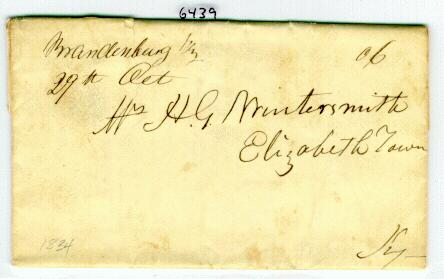 6439
Brandenburg Ky
06
29th Oct
Mr H.G. Wintersmith
Elizabeth Town
Ky
1834